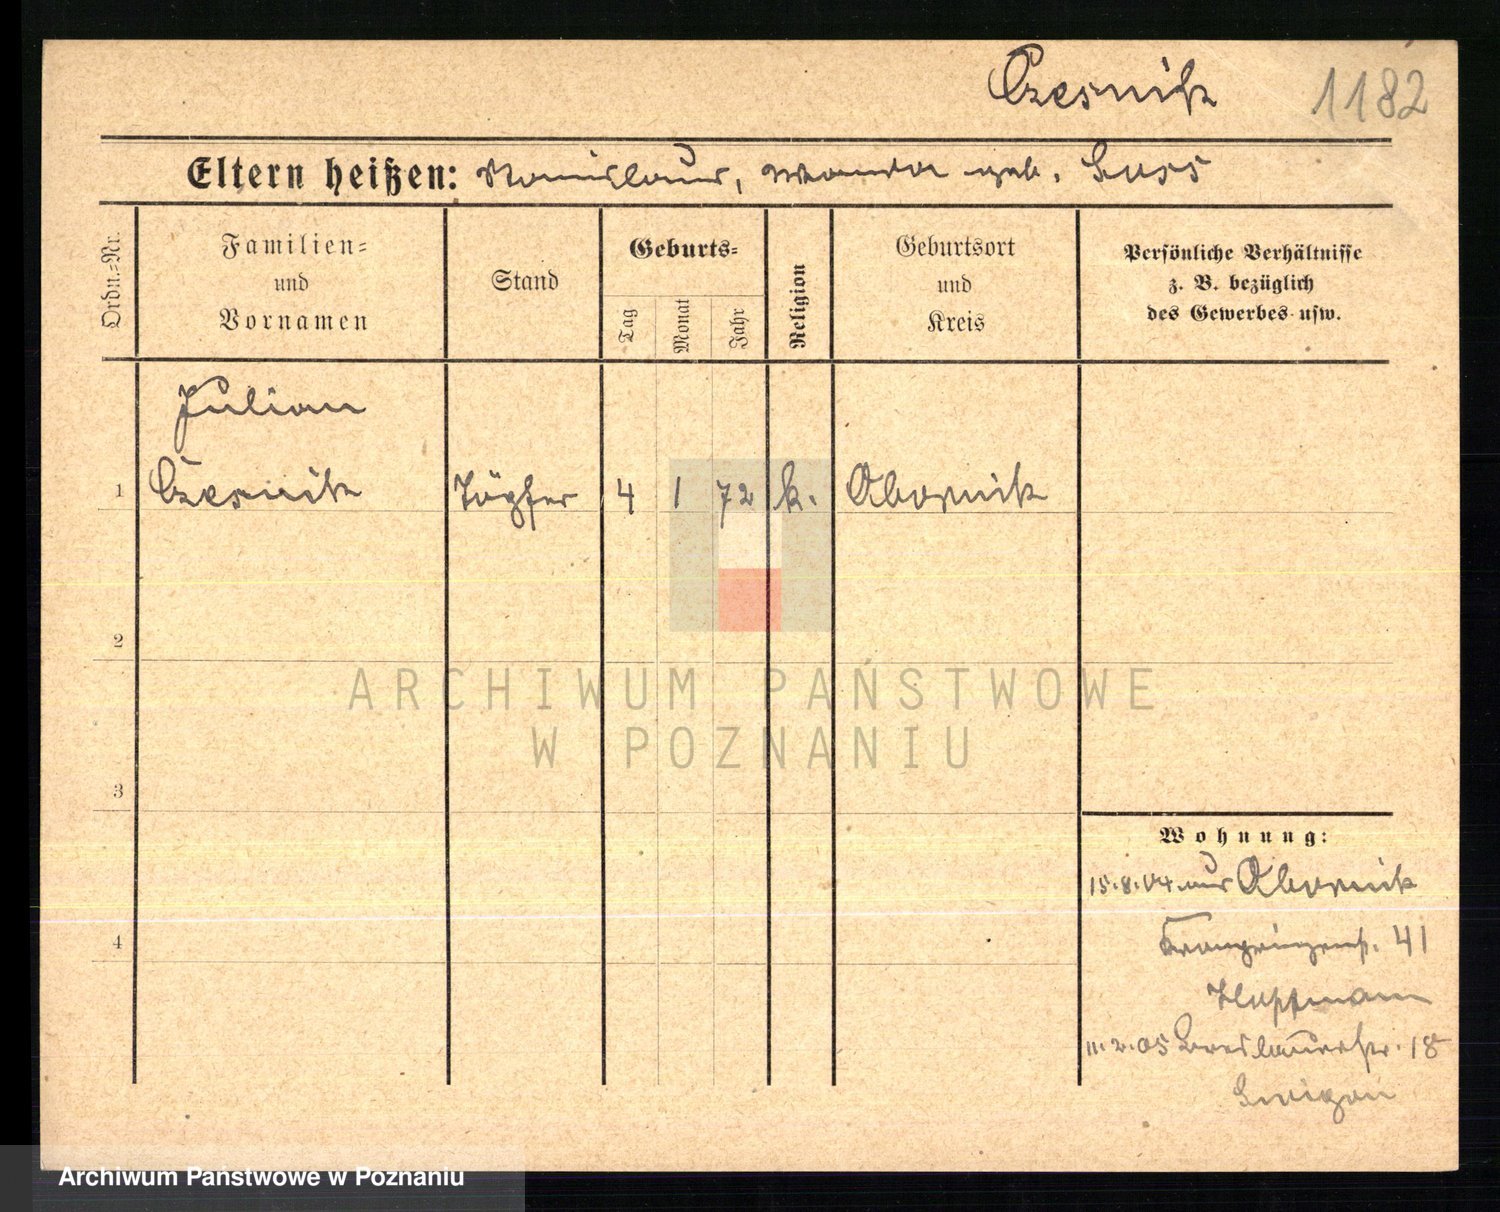 Czesnik 1182
Eltern heißen: Stanislaus, Wanda geb. Suss
Ordn.=Nr.
Familien=
und
Vornamen
Stand
Geburts=
Tag
Monat
Jahr
Religion
Geburtsort
und
Kreis
Persönliche Verhältnisse
z. B. bezüglich
des Gewerbes usw.
Julian
1 Czesnik Töpfer 4 1 72 k. Obornik
2
ARCHIWUM PAŃSTWOWE
W POZNANIU
3
Wohnung:
15.8.04 aus Obornik
4
Kronprinzenst. 41
Hoffmann
11.2.05 Breslauerstr. 18
Archiwum Państwowe w Poznaniu